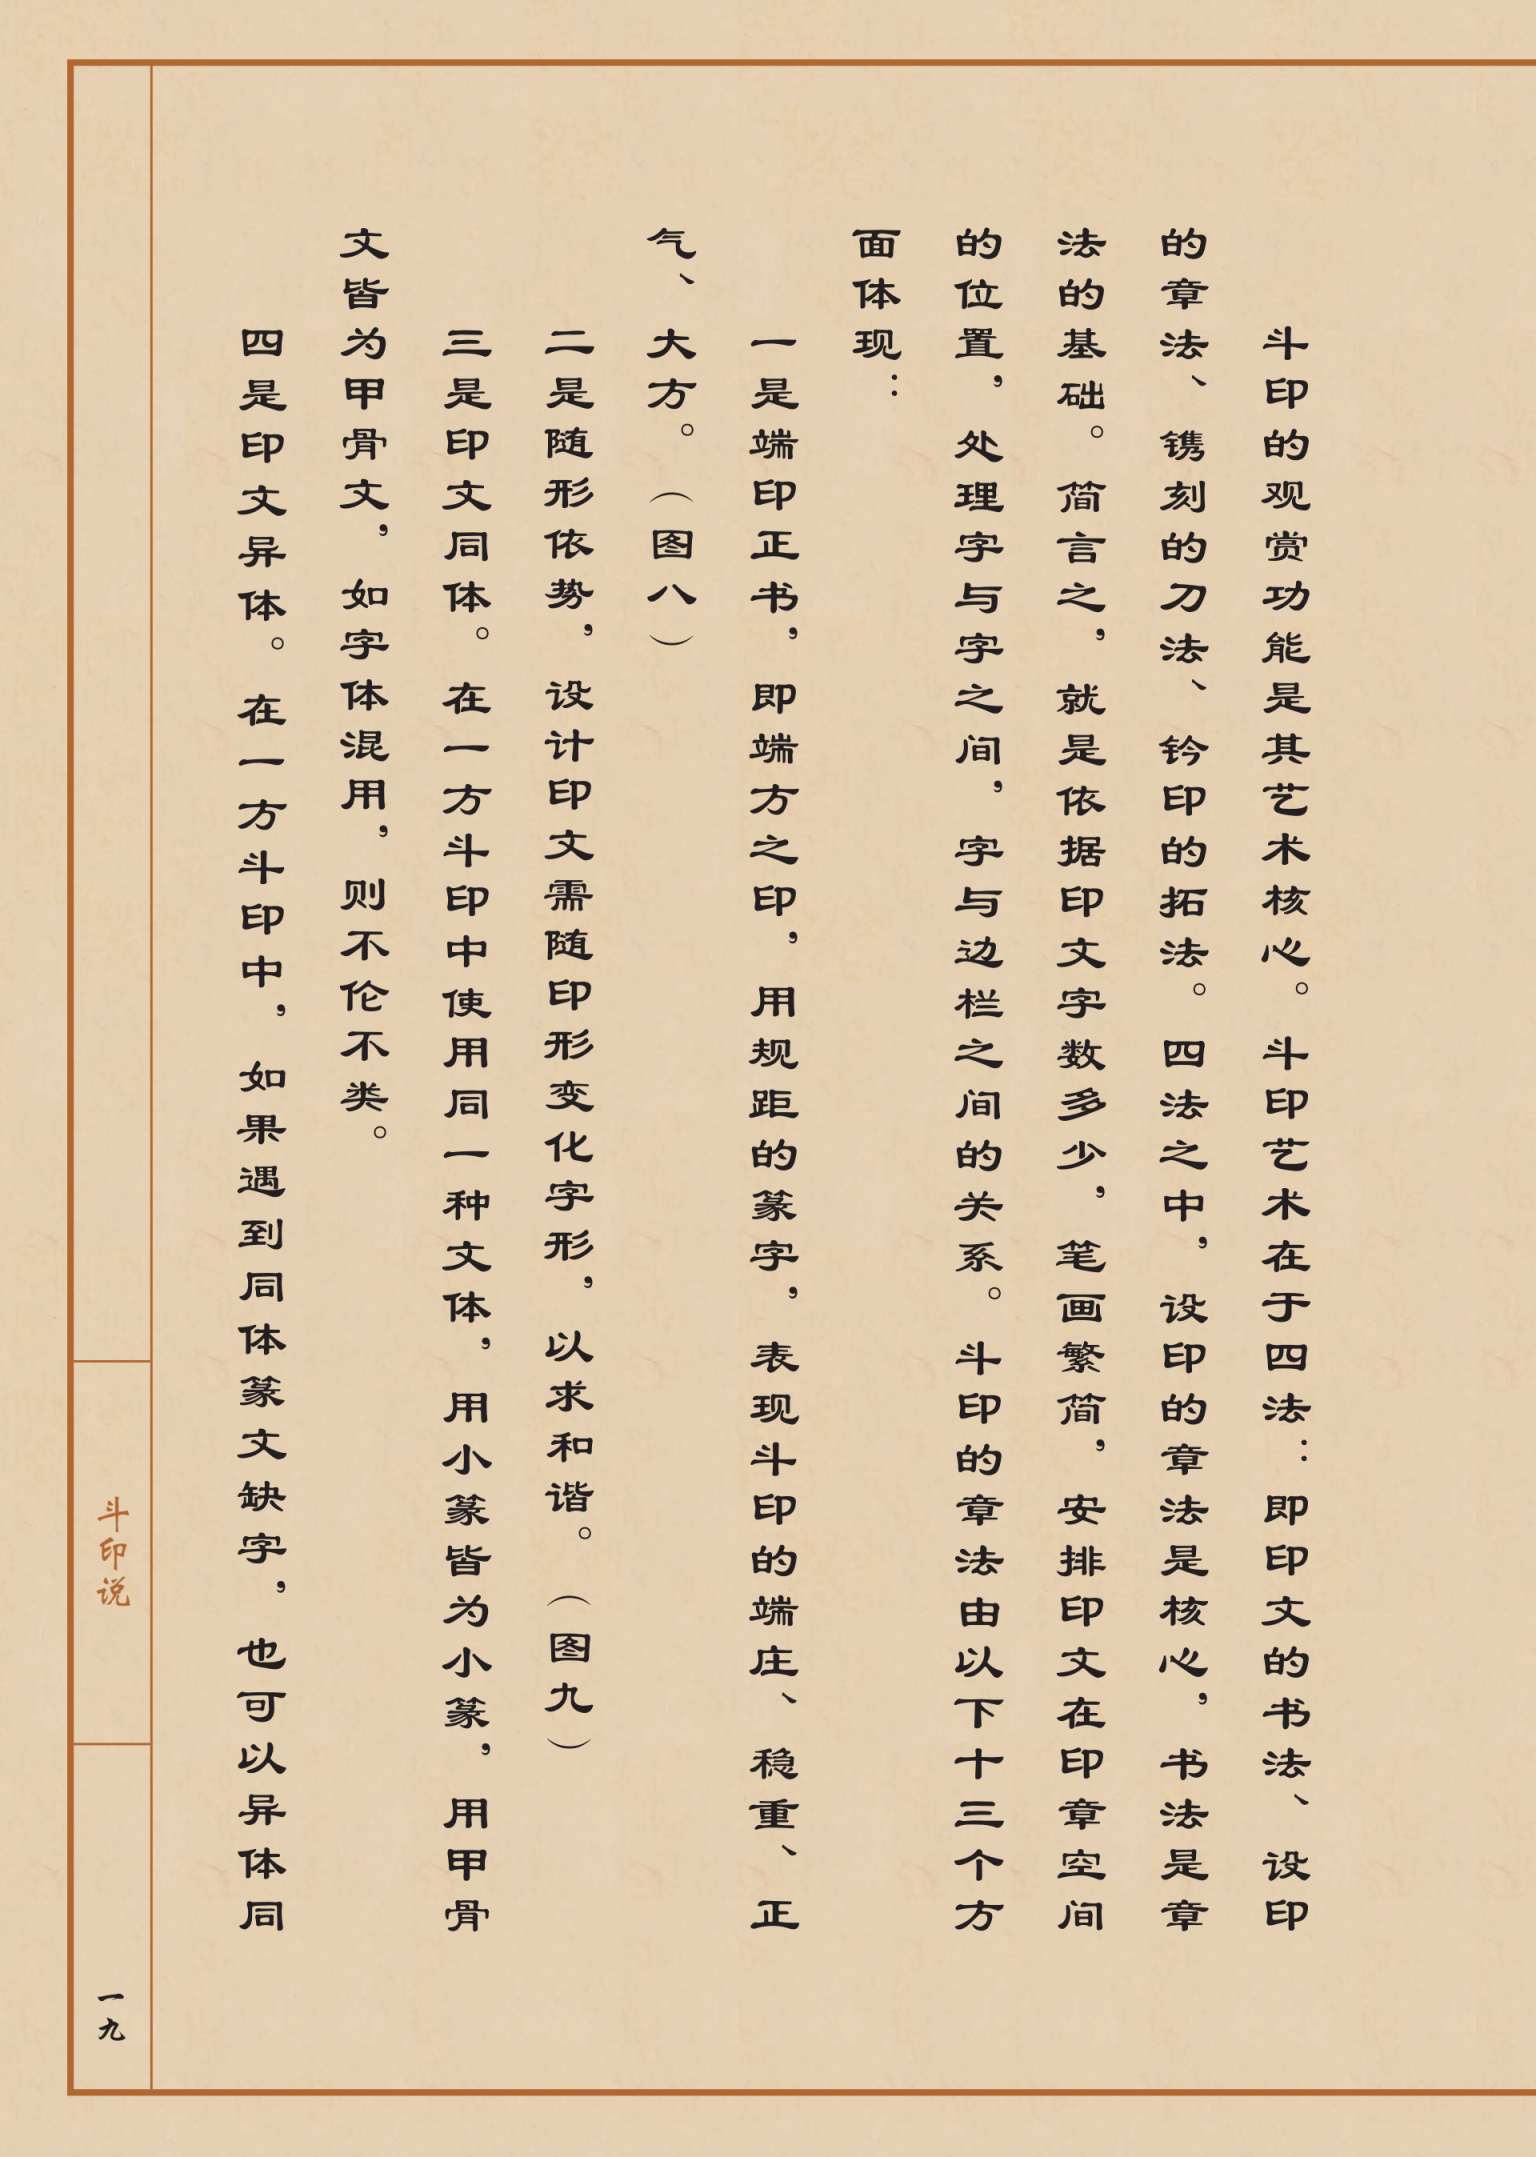 斗印的观赏功能是其艺术核心。斗印艺术在于四法：即印文的书法、设印
的章法、镌刻的刀法、钤印的拓法。四法之中，设印的章法是核心，书法是章
法的基础。简言之，就是依据印文字数多少，笔画繁简，安排印文在印章空间
的位置，处理字与字之间，字与边栏之间的关系。斗印的章法由以下十三个方
面体现：
一是端印正书，即端方之印，用规距的篆字，表现斗印的端庄、稳重、正
气、大方。（图八）
二是随形依势，设计印文需随印形变化字形，以求和谐。（图九）
三是印文同体。在一方斗印中使用同一种文体，用小篆皆为小篆，用甲骨
文皆为甲骨文，如字体混用，则不伦不类。
四是印文异体。在一方斗印中，如果遇到同体篆文缺字，也可以异体同
斗印说
一九